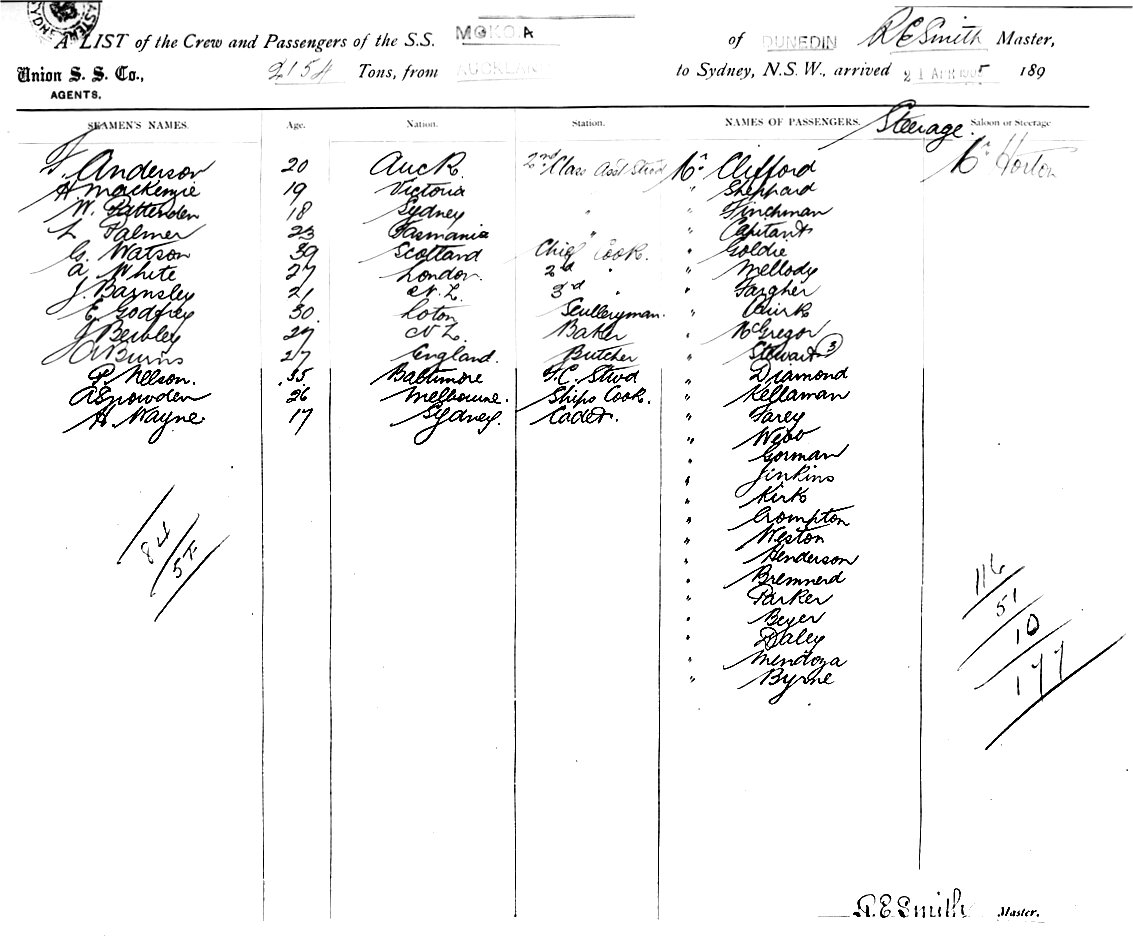 A LIST of the Crew and Passengers of the S.S. MOKOIA of DUNEDIN R E Smith Master,
Union S. S. Co., 2154 Tons, from AUCKLAND to Sydney, N.S.W., arrived 21 APR 1905 189
AGENTS.
SEAMEN'S NAMES. Age. Nation. Station. NAMES OF PASSENGERS. Steerage. Saloon or Steerage
Anderson 20 Auck. 2nd Class Asst Stwd Mr Clifford Mr Horton
H Mackenzie 19 Victoria " Sheppard
W. Pattenden 18 Sydney " " Finchman
L Palmer 23 Tasmania " " Capitant
G. Watson 39 Scotland Chief Cook. " Goldie
A. White 27 London. 2nd " " Mellody
J. Barnsley 21 N.Z. 3rd " " Fargher
E. Godfrey 30 Loton Sculleryman. " Quirk
J Beibley 27 N.Z. Baker " McGregor
A Burns 27 England. Butcher " Stewart 3
P. Nelson. 35 Baltimore F.C. Stwd " Diamond
A E Snowden 26 Melbourne. Ships Cook. " Kellaman
H. Wayne 17 Sydney. Cadet. " Farey
" Webb
" Gorman
" Jinkins
" Kirk
" Crompton
" Weston
" Henderson
" Bremnerd
" Parker
" Beyer
" Daley
" Mendoza
" Byrne
84
57
116
51
10
177
R. E. Smith Master.